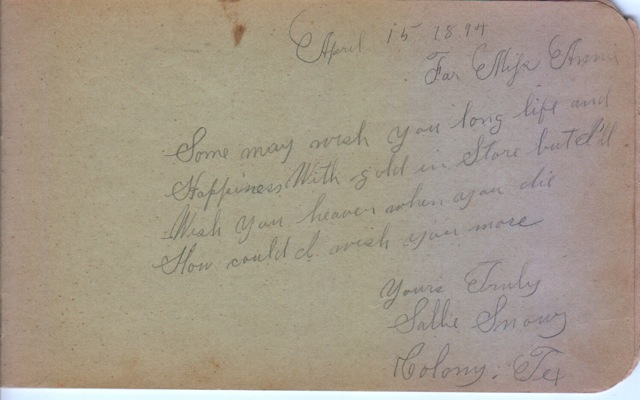 April 15 1894
For Miss Annie
Some may wish you long life and
Happiness With gold in Store but I'll
Wish you heaven when you die
How could I wish you more
Yours Truly
Sallie Snowy
Colony. Tex